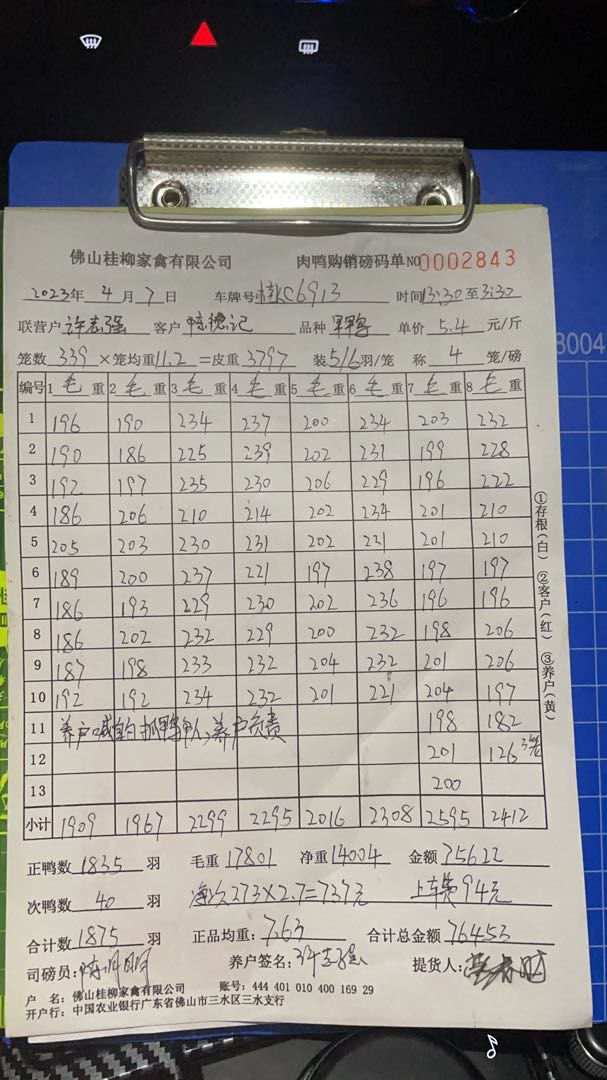 佛山桂柳家禽有限公司 肉鸭购销磅码单 NO 0002843
2023年 4月 7日 车牌号 桂KC6913 时间 13:30 至 3:30
联营户 许志强 客户 陈德记 品种 单价 5.4 元/斤
笼数 339 ×笼均重 11.2 =皮重 3797 装 5/6 羽/笼 称 4 笼/磅
编号 1 毛 重 2 毛 重 3 毛 重 4 毛 重 5 毛 重 6 毛 重 7 毛 重 8 毛 重
1 196 190 234 237 200 234 203 232
2 190 186 225 239 202 231 199 228
3 192 197 235 230 206 229 196 222
4 186 206 210 214 202 234 201 210
5 205 203 230 231 202 221 201 210
6 189 200 237 221 197 238 197 197
7 186 193 229 230 202 236 196 196
8 186 202 232 229 200 232 198 206
9 187 198 233 232 204 232 201 206
10 192 192 234 232 201 221 204 197
11 养户喊的抓鸭人,养户负责 198 182
12 201 126 3笼
13 200
小计 1909 1967 2299 2295 2016 2308 2595 2412
①存根(白) ②客户(红) ③养户(黄)
正鸭数 1835 羽 毛重 17801 净重 14004 金额 75622
次鸭数 40 羽 净次273×2.7=737元 上车费94元
合计数 1875 羽 正品均重: 7.63 合计总金额 76453
司磅员: 养户签名: 许志强 提货人:
户 名: 佛山桂柳家禽有限公司 账号: 444 401 010 400 169 29
开户行: 中国农业银行广东省佛山市三水区三水支行